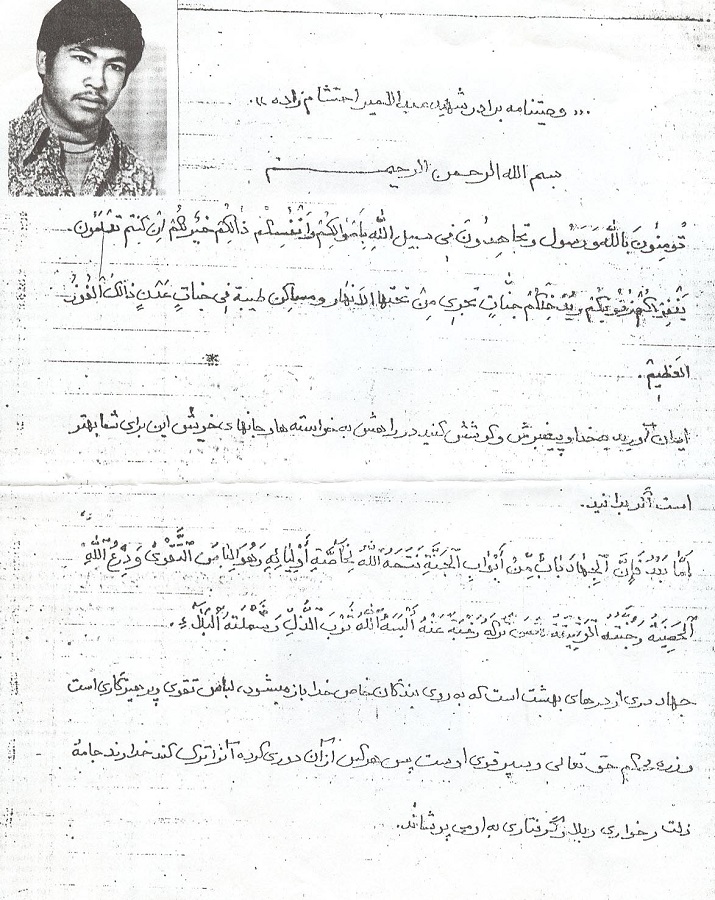 ... وصیتنامه برادر شهید عبدالامیر احتشام زاده ».
بسم الله الرحمن الرحیم
تُومِنُونَ بِاللّهِ وَ رَسُول وتجاهِدُونَ فی سبیل اللّهِ بِاَموالِکُم وَاَنفُسِکُم ذالِکُم خَیرٌ لَکُم اِن کُنتم تَعلَمُون.
یَغفِر لَکُم ذُنُوبَکُم وَیُدخِلکُم جَنّاتٍ تَجری مِن تَحتِها الاَنهار و مساکِن طیبة فی جنات عَدنٍ ذالک الفَوزُ
العَظیم.
ایمان آورید به خدا و پیغمبرش و کوشش کنید در راهش به خواسته ها و جانهای خویش این برای شما بهتر
است اگر بدانید.
اَمّا بَعدُ فَاِنَّ الجِهادَ بابٌ مِن اَبوابِ الجَنَّةِ فَتَحَهُ اللهُ لِخاصَّةِ اَولِیائِهِ وَهُوَ لِباسُ التَّقوی وَ دِرعُ اللهِ
الحَصِینَةُ وَجُنَّتُهُ الوَثِیقَةُ فَمَن تَرَکَهُ رَغبَةً عَنهُ اَلبَسَهُ اللهُ ثَوبَ الذُّلِّ وَشَمِلَتهُ البَلاءُ.
جهاد دری از درهای بهشت است که به روی بندگان خاص خدا باز میشود، لباس تقوی و پرهیزگاری است
و زره محکم حق تعالی و سپر قوی اوست پس هرکس از آن دوری کرده آنرا ترک کند خداوند جامه
ذلت و خواری و بلا و گرفتاری به او می پوشاند.